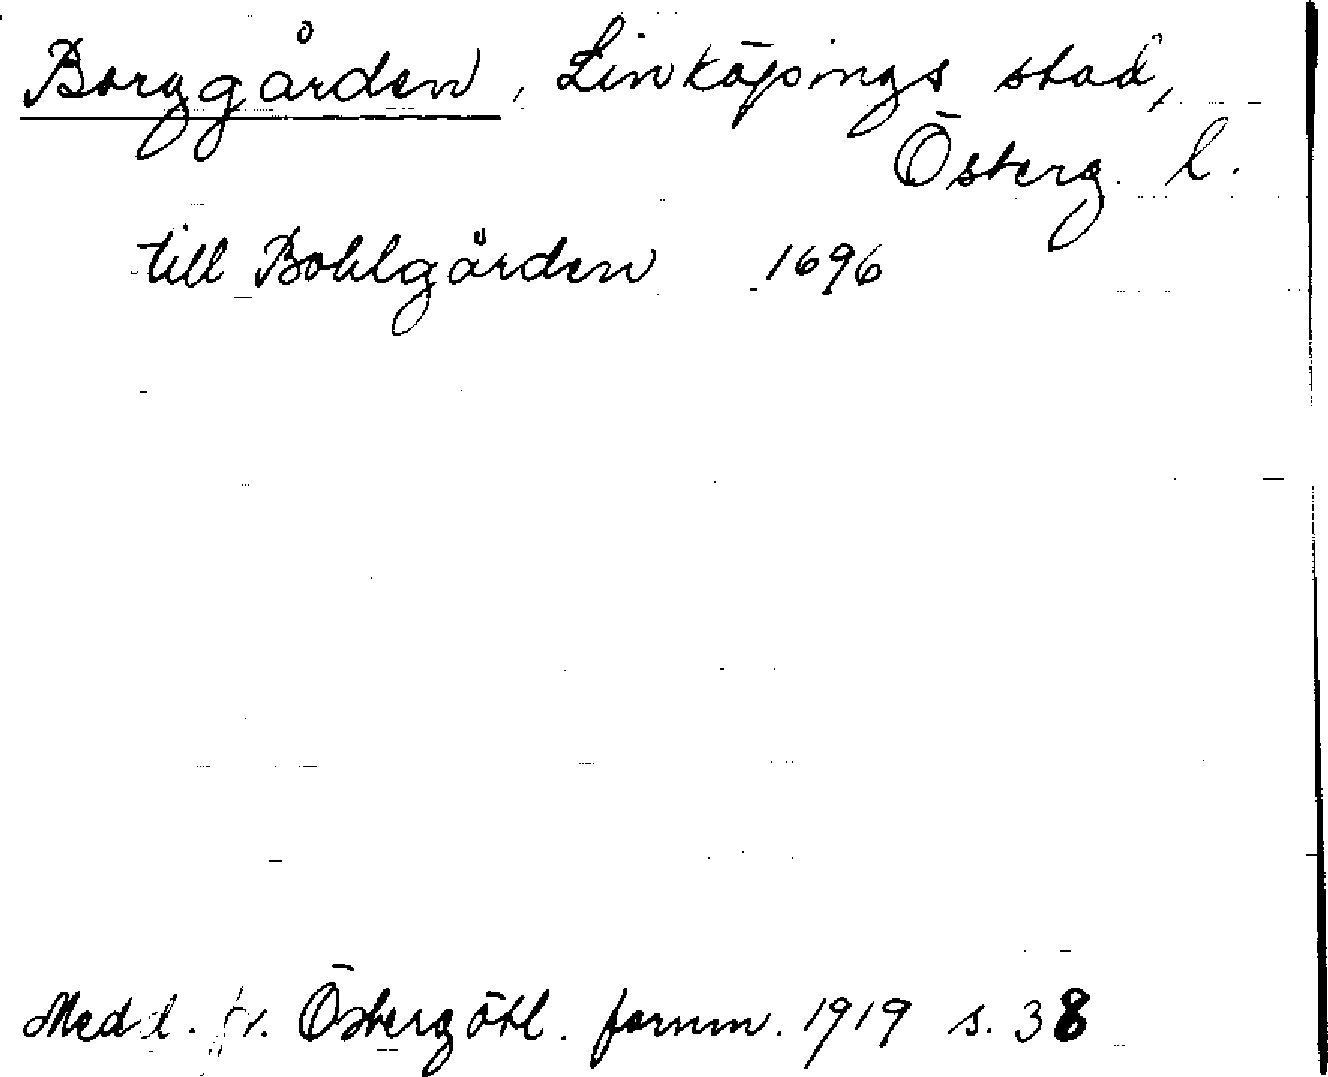 Borggården, Linköpings stad,
Österg. l.
till Bohlgården 1696
Medd. fr. Östergötl. fornm. 1919 s. 38